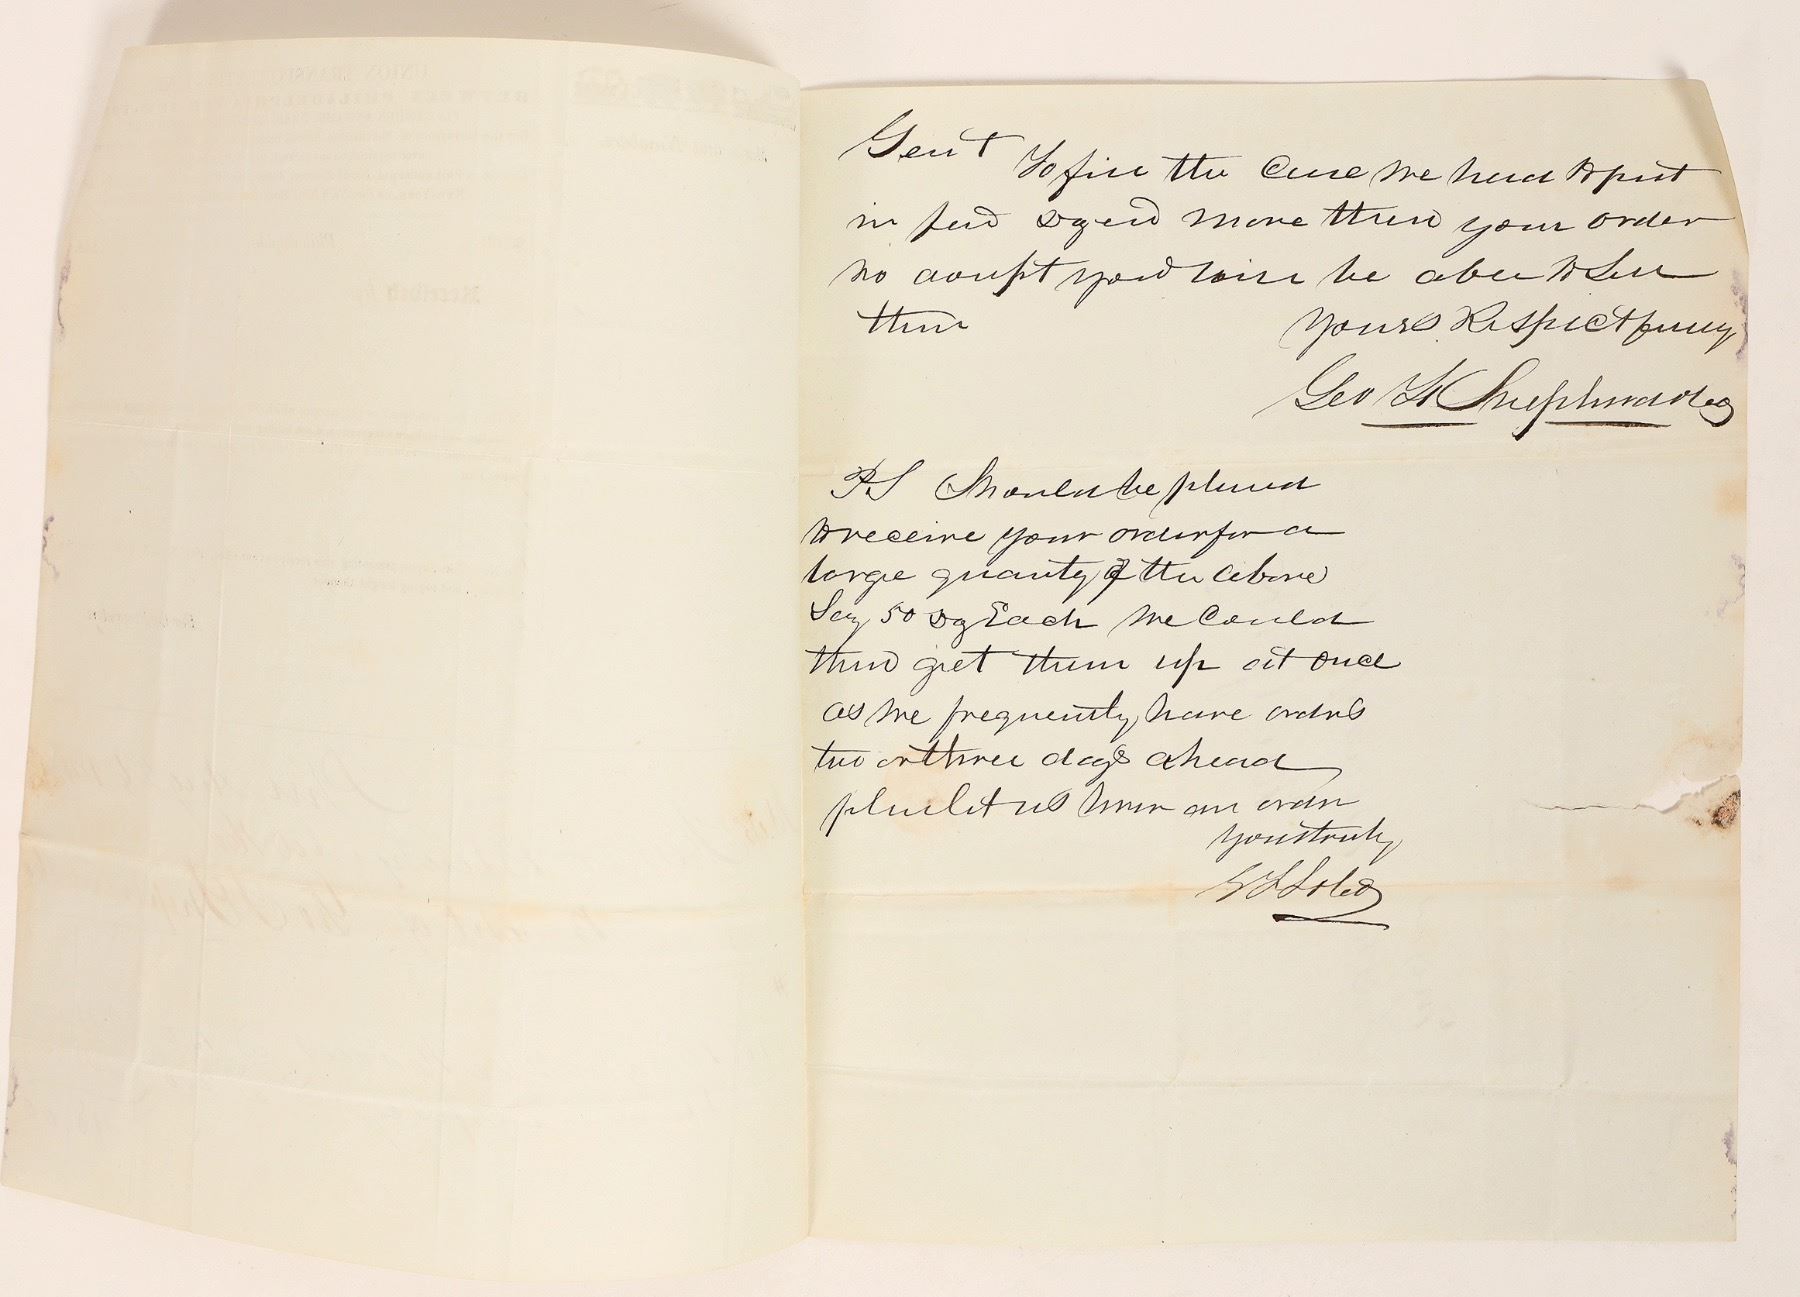 UNION TRANSPORT
BETWEEN PHILADELPHIA
Received
Gent
To fill the Case we had to put
in few Dozen more then your order
no doupt you will be able to Sell
them
Yours Respectfully
Geo Shepherd & Co
PS Should be pleased
to receive your order for a
large quanty of the above
Say 50 Dz Each we Could
then get them up at once
as we frequently have orders
two or three days ahead
pleas let us have an order
Yours truly
S & Co